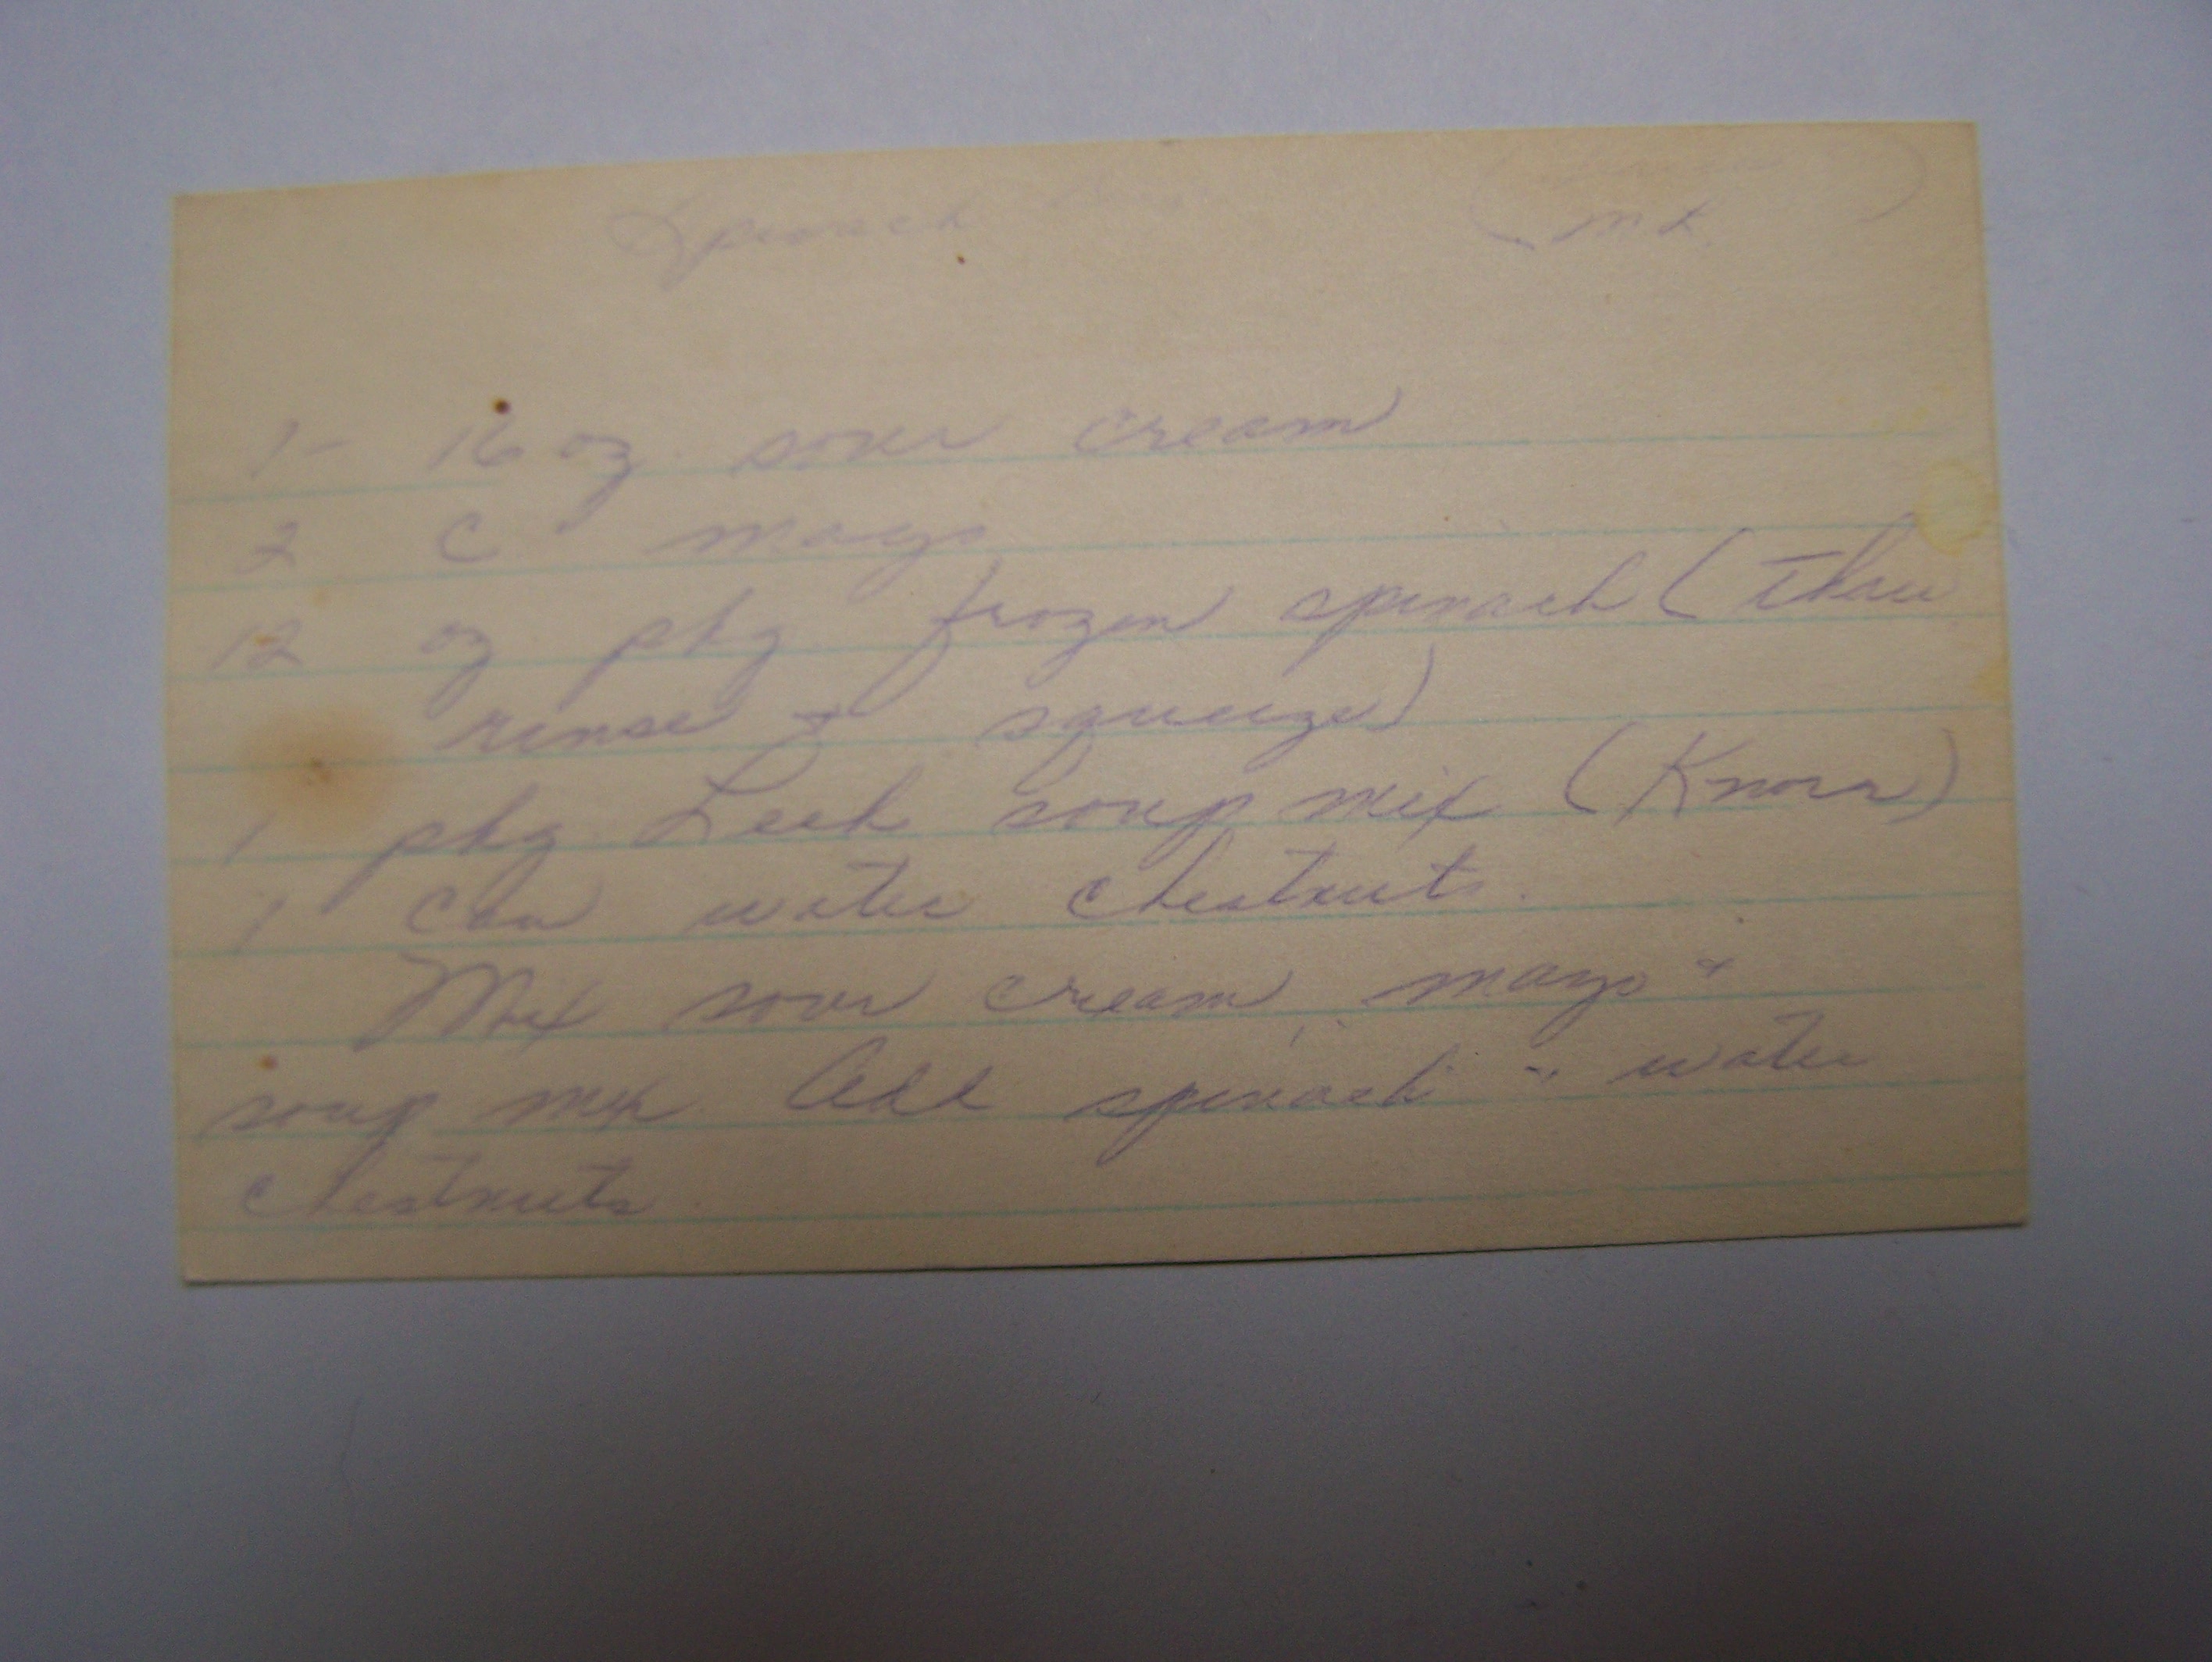 Spinach
M L
1- 16 oz. sour cream
2 C mayo
12 oz pkg frozen spinach (thaw
rinse & squeeze)
1 pkg. Leek soup mix (Knorr)
1 can water chestnuts.
Mix sour cream, mayo &
soup mix. Add spinach & water
chestnuts.